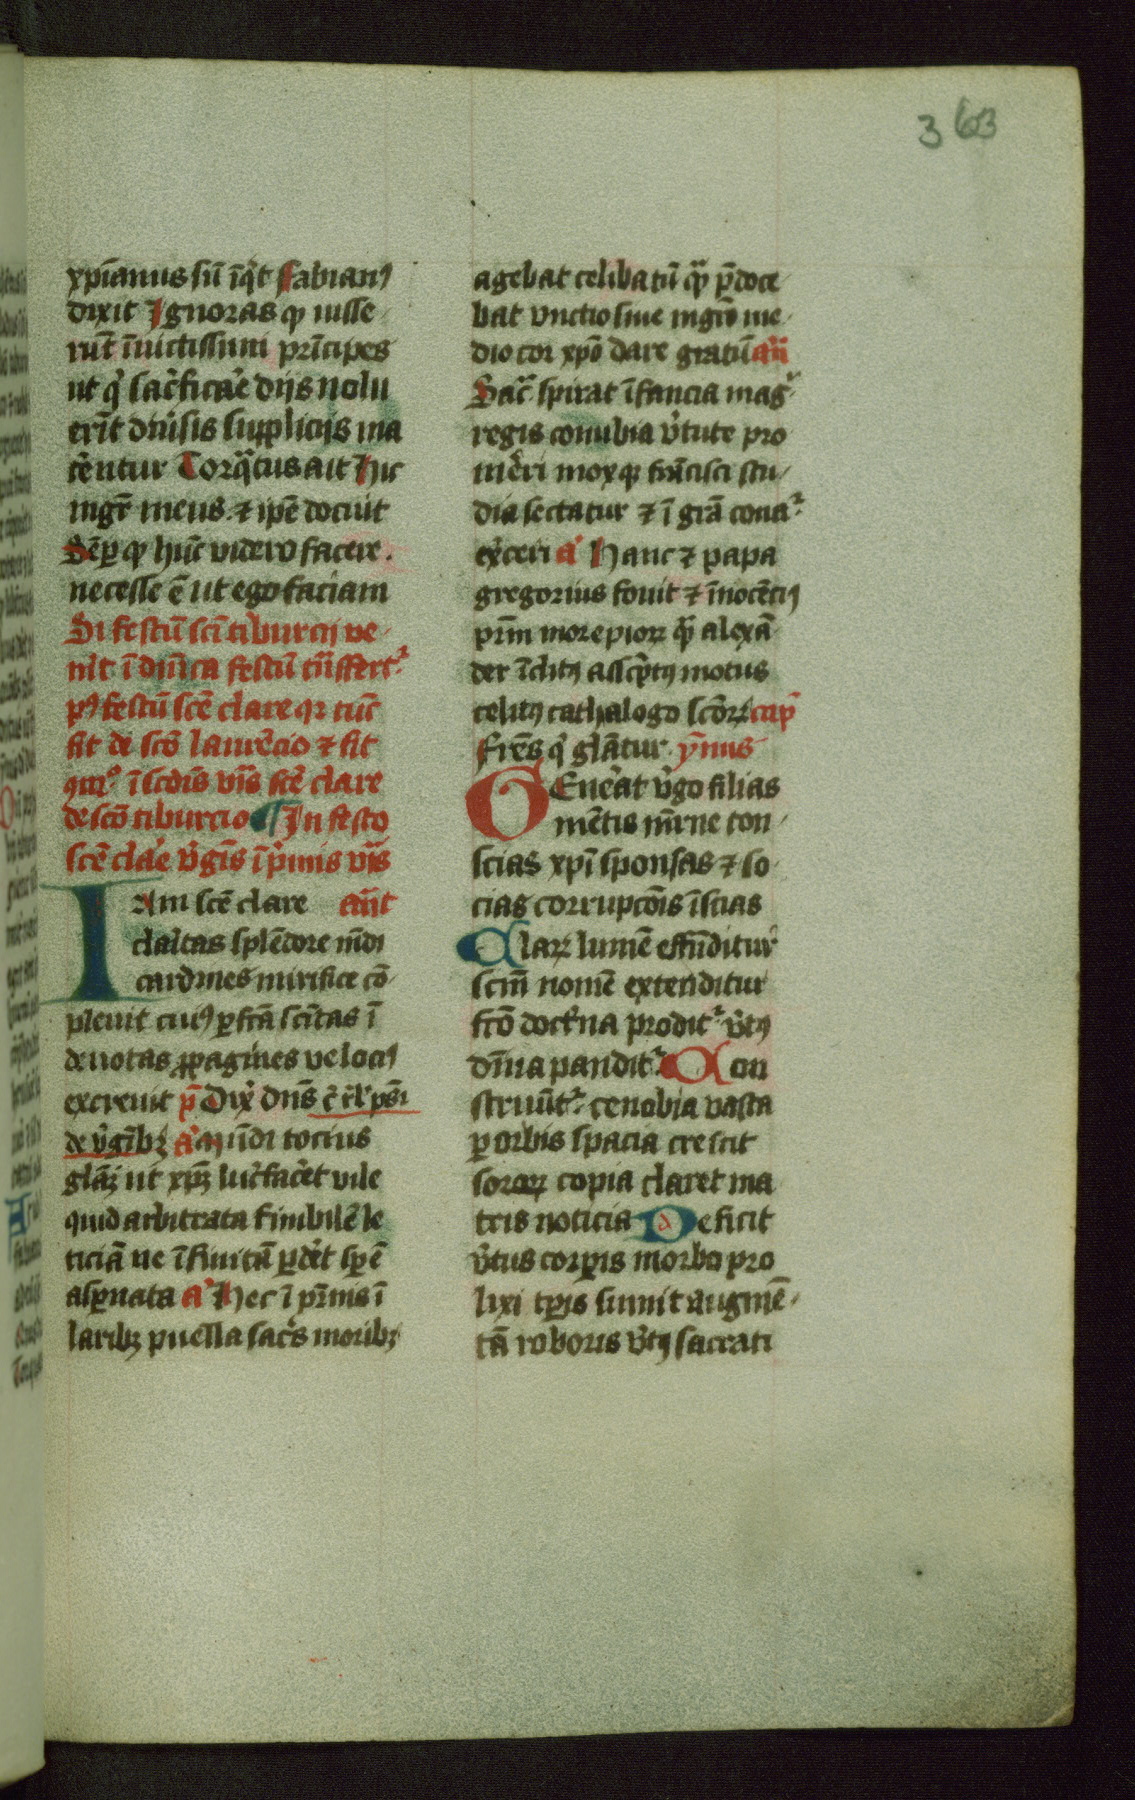 363
xp̄ianus sū īq̄t Fabian9
dixit Ignoras q iusse
rūt īuictissimi prīcipes
ut q̇ sac̄ficāe diis nolu
erīt diūsis suppliciis ma
tēntur Torq̄tus ait Hic
mgr̄ meus ⁊ ip̄e docuit
Sēp q hūc videro facere.
necesse ē ut ego faciam
Si festū scī tiburcij ve
nīt ī dn̄ica festū
p9 festū scē clare qr tūc
fit de scō laurēcio ⁊ fit
ī scdīs vīs scē clare
de scō tiburcio In festo
scē clāe v̄gīs ī p̄mis vīs
IAm scē clare an̄t
clāitas splēdore mn̄di
cardines mirifice cō
pleuit cui9 p fcā scītas ī
deuotas ꝓpagines veloci9
excreuit p̄ Dix̄ dn̄s
de v̄gībȝ a᷎ mūdi tocius
glāȝ ut xp̄ȝ luc̄facēt vile
quid arbitrata fimbilē le
ticiā ne īfinitā pdēt spē
aspnata a᷎ Hec ī prīmis ī
laribȝ puella sac̄s moribȝ
agebat celibatū q̄ p̄doce
bat vnctio siue mgr̄o me
dio cor xp̄o dare gratū an̄
Hāc spirat īfancia mag̛
regis conubia v̄tute pro
mēri mox q frācisci stu
dia sectatur ⁊ ī grā conā
ex̄ceri a᷎ Hanc ⁊ papa
gregorius fouit ⁊ īnocēci9
prīm more pioꝝ q̄ alexā
der īclit9 asscpt9 motus
celit9 cathalogo scōꝝ cap̄
frēs q̇ glātur ymnus
GEnēat v̄go filias
mētis mr̄ne con
scias xp̄i sponsas ⁊ so
cias corrupcōis īscias
Claꝝ lumē effūditur
scīm nomē extenditur
fcō doctna prodit᷑ v̄t9
dīna pandit᷑ Con
struūt᷑ cenobia vasta
p orbis spacia crescit
soroꝝ copia claret ma
tris noticia Deficit
v̄tus corpis morbo pro
lixi tpis sumit augmē
tā roboris v̄t9 sacrati